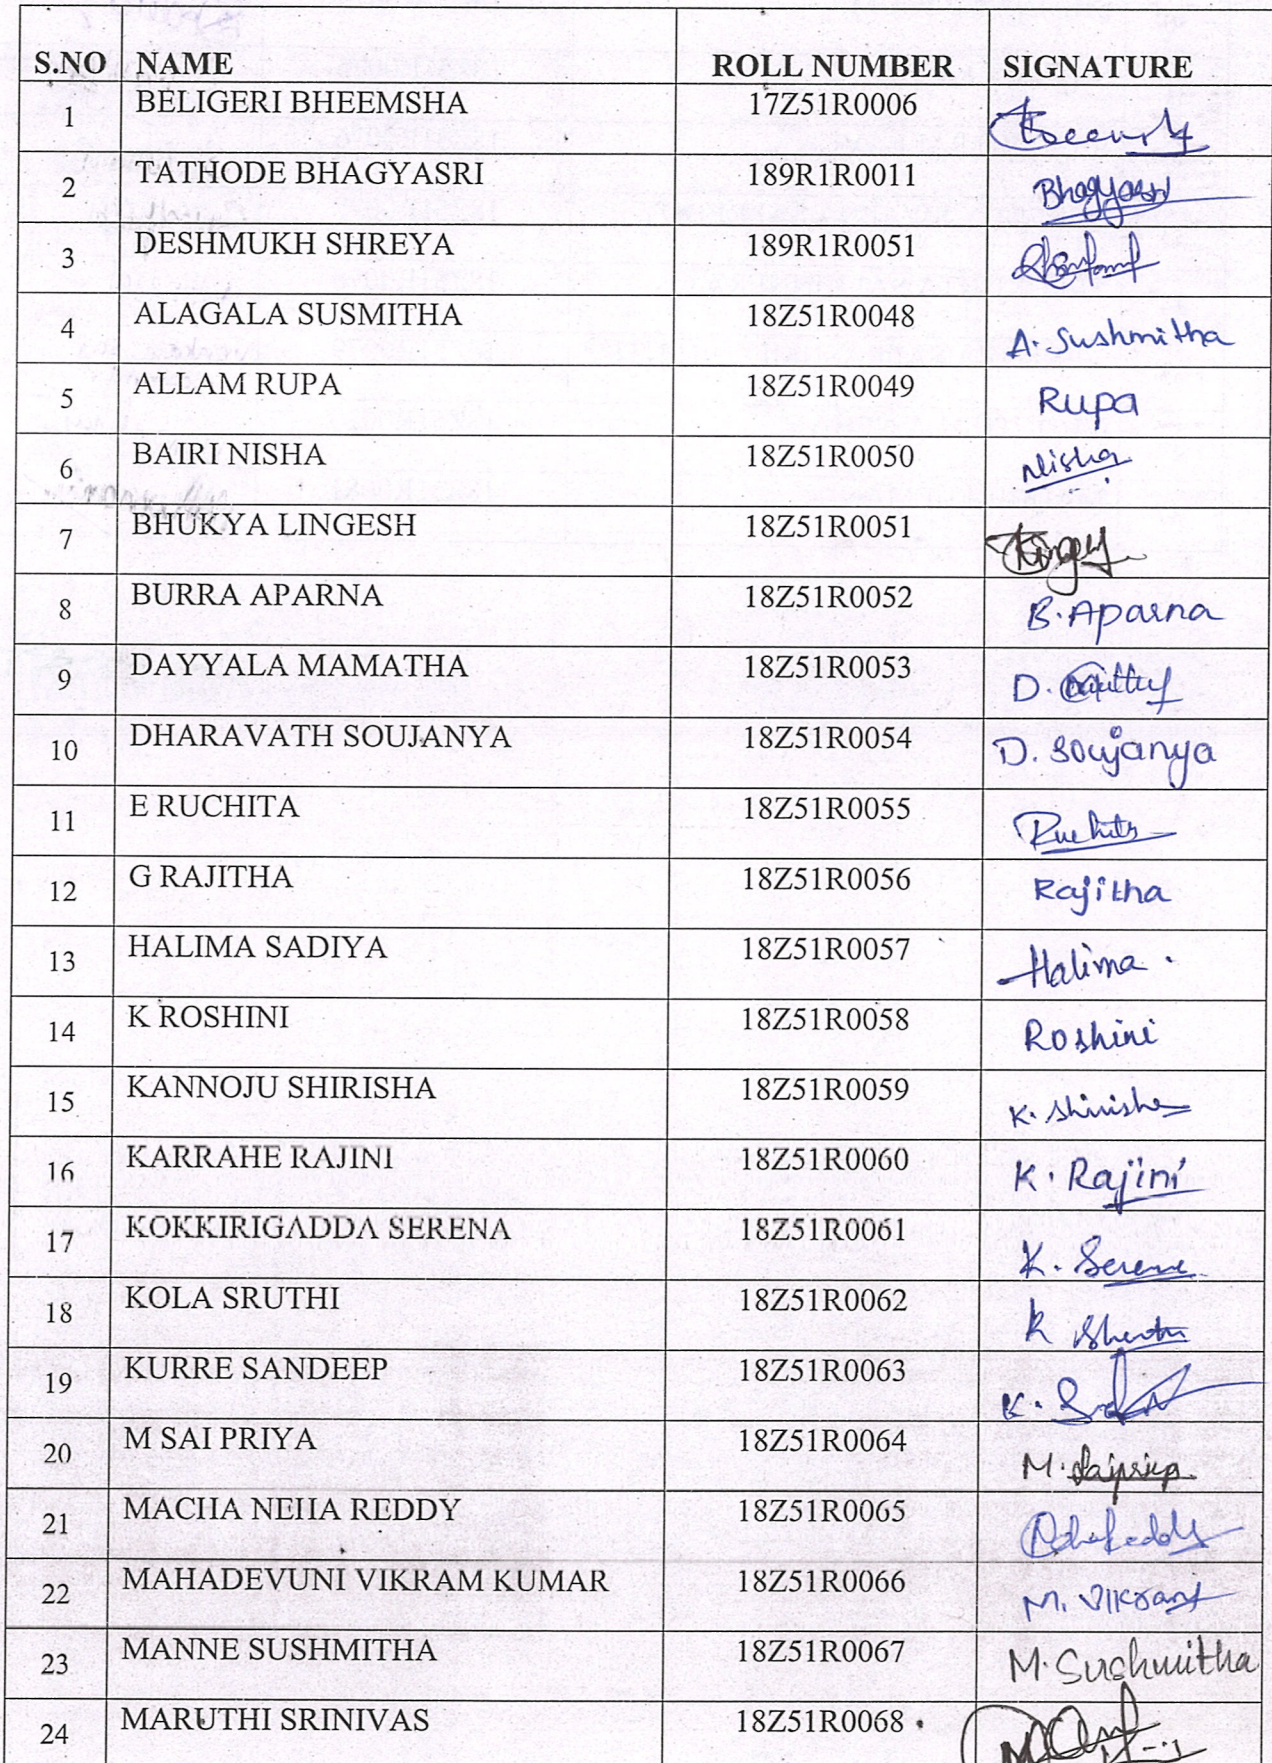 S.NO NAME ROLL NUMBER SIGNATURE
1 BELIGERI BHEEMSHA 17Z51R0006
2 TATHODE BHAGYASRI 189R1R0011 Bhagyasri
3 DESHMUKH SHREYA 189R1R0051
4 ALAGALA SUSMITHA 18Z51R0048 A. Sushmitha
5 ALLAM RUPA 18Z51R0049 Rupa
6 BAIRI NISHA 18Z51R0050 Nisha
7 BHUKYA LINGESH 18Z51R0051
8 BURRA APARNA 18Z51R0052 B. Aparna
9 DAYYALA MAMATHA 18Z51R0053 D.
10 DHARAVATH SOUJANYA 18Z51R0054 D. Soujanya
11 E RUCHITA 18Z51R0055 Ruchita
12 G RAJITHA 18Z51R0056 Rajitha
13 HALIMA SADIYA 18Z51R0057 Halima.
14 K ROSHINI 18Z51R0058 Roshini
15 KANNOJU SHIRISHA 18Z51R0059 K. Shirisha
16 KARRAHE RAJINI 18Z51R0060 K. Rajini
17 KOKKIRIGADDA SERENA 18Z51R0061 K. Serena
18 KOLA SRUTHI 18Z51R0062 K
19 KURRE SANDEEP 18Z51R0063 K.
20 M SAI PRIYA 18Z51R0064 M. Saipriya
21 MACHA NEHA REDDY 18Z51R0065
22 MAHADEVUNI VIKRAM KUMAR 18Z51R0066 M. Vikram
23 MANNE SUSHMITHA 18Z51R0067 M. Sushmitha
24 MARUTHI SRINIVAS 18Z51R0068